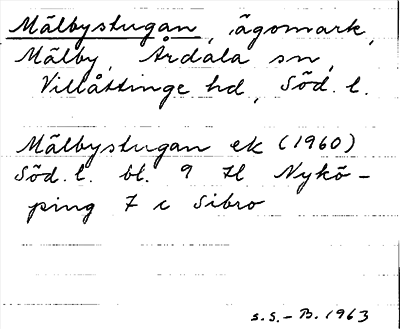 Mälbystugan, ägomark,
Mälby, Årdala sn,
Villåttinge hd, Söd. l.
Mälbystugan ek (1960)
Söd. l. bl. 9 H Nykö-
ping 7 c Sibro
S.S.-B. 1963